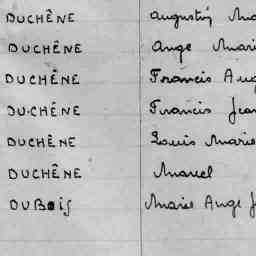 DUCHÊNE Augustin Ma
DUCHÊNE Ange Mari
DUCHÊNE Francis Aug
DU.CHÊNE Francis Jean
DUCHÊNE Louis Marie
DUCHÊNE Marcel
DUBois Marie Ange J